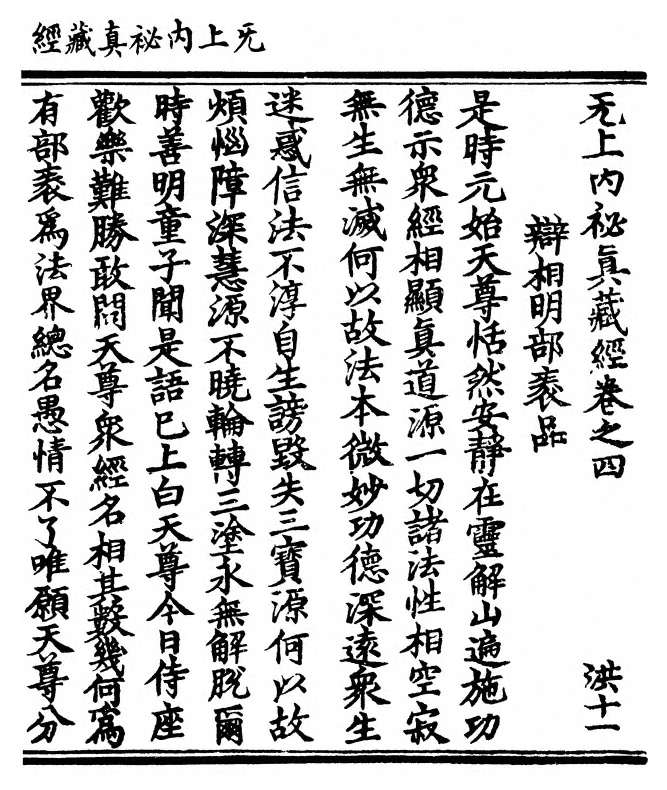 无上内祕真藏經
无上内祕真藏經卷之四 洪十一
辯相明部袠品
是時元始天尊恬然安靜在靈解山遍施功
德示衆經相顯真道源一切諸法性相空寂
無生無滅何以故法本微妙功德深遠衆生
迷惑信法不淳自生謗毀失三寶源何以故
煩惱障深慧源不曉輪轉三塗永無解脫爾
時善明童子聞是語已上白天尊今日侍座
歡樂難勝敢問天尊衆經名相其數幾何寫
有部袠爲法界總名愚情不了唯願天尊分